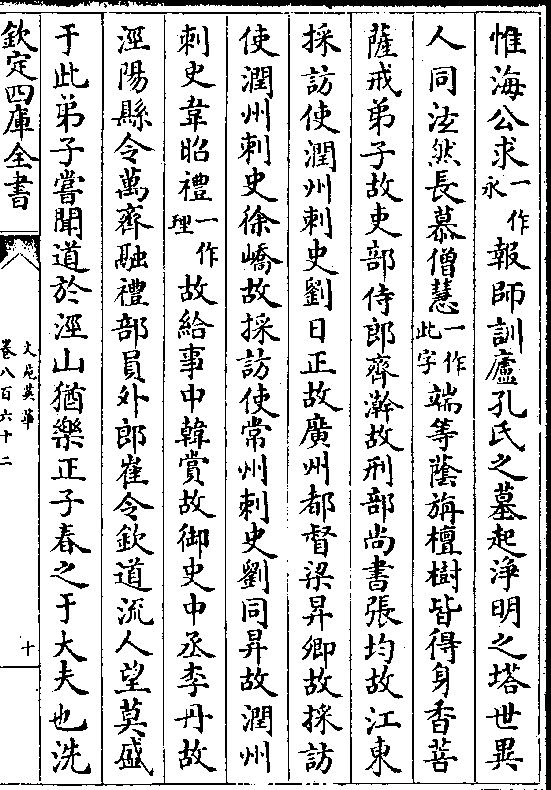 惟海公求一作永報師訓廬孔氏之墓起淨明之塔世異
人同泫然長慕僧慧一作此字端等蔭旃檀樹皆得身香菩
薩戒弟子故吏部侍郎齊澣故刑部尚書張均故江東
採訪使潤州刺史劉日正故廣州都督梁昇卿故採訪
使潤州刺史徐嶠故採訪使常州刺史劉同昇故潤州
刺史韋昭禮一作理故給事中韓賞故御史中丞李丹故
涇陽縣令萬齊融禮部員外郎崔令欽道流人望莫盛
于此弟子嘗聞道於涇山猶樂正子春之于大夫也洗
欽定四庫全書
文苑英華
卷八百六十二
十